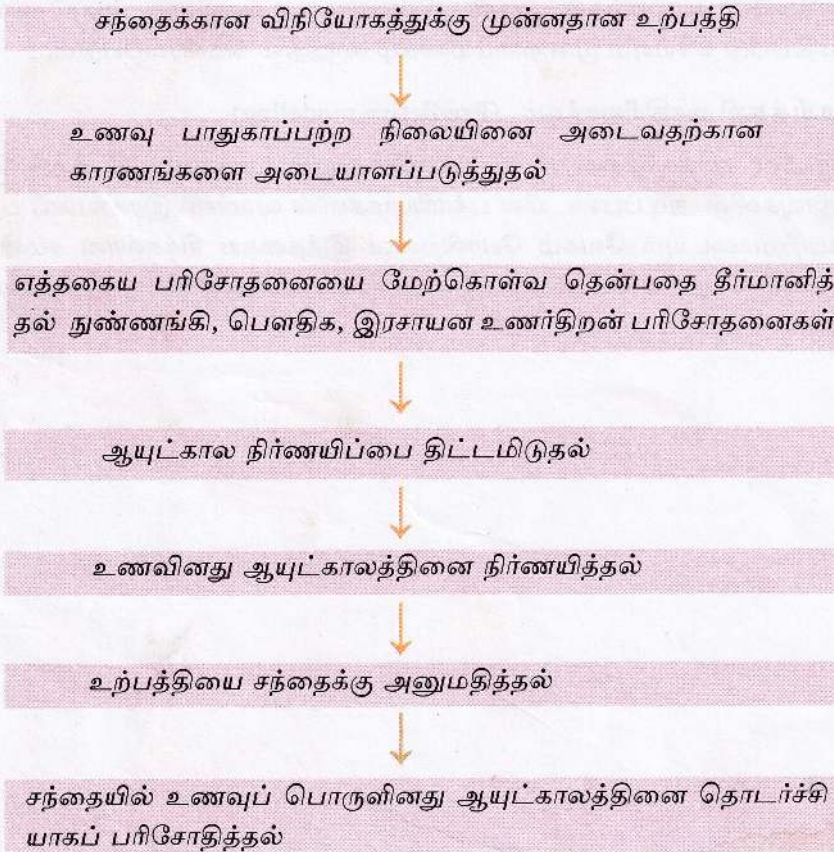 சந்தைக்கான விநியோகத்துக்கு முன்னதான உற்பத்தி
உணவு பாதுகாப்பற்ற நிலையினை அடைவதற்கான
காரணங்களை அடையாளப்படுத்துதல்
எத்தகைய பரிசோதனையை மேற்கொள்வ தென்பதை தீர்மானித்
தல் நுண்ணங்கி, பௌதிக, இரசாயன உணர்திறன் பரிசோதனைகள்
ஆயுட்கால நிர்ணயிப்பை திட்டமிடுதல்
உணவினது ஆயுட்காலத்தினை நிர்ணயித்தல்
உற்பத்தியை சந்தைக்கு அனுமதித்தல்
சந்தையில் உணவுப் பொருளினது ஆயுட்காலத்தினை தொடர்ச்சி
யாகப் பரிசோதித்தல்